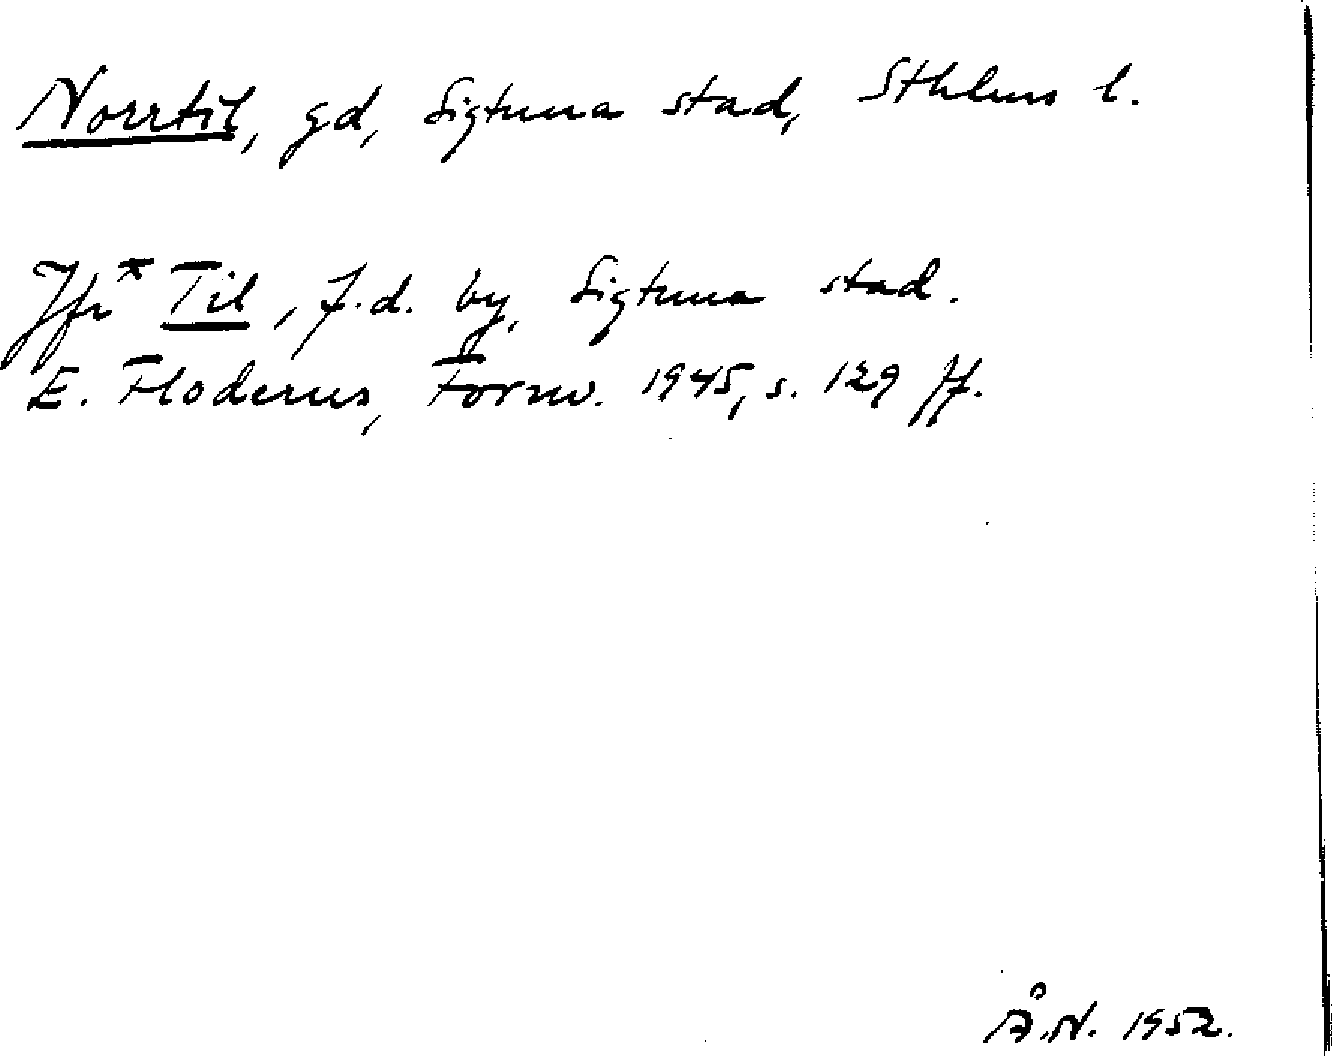 Norrtil, gd, Sigtuna stad, Sthlms l.
Jfr *Til, f.d. by, Sigtuna stad.
E. Floderus, Fornv. 1945, s. 129 ff.
Å.N. 1952.